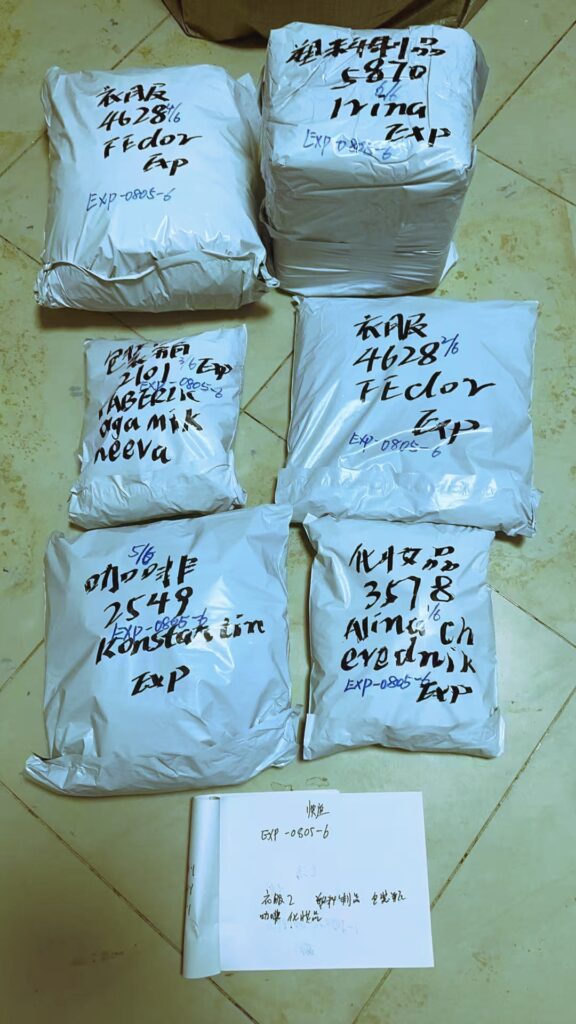 衣服
4628 4/6
FEdor
Exp
EXP-0805-6
塑料制品
5870
6/6
Irina
Exp
EXP-0805-6
包装
2101 3/6 Exp
EXP-0805-6
neeva
衣服
4628 2/6
FEdor
Exp
EXP-0805-6
5/6
咖啡
2549
EXP-0805-6
Konstantin
Exp
化妆品
3578
1/6
Alina Ch
erednik
EXP-0805-6 Exp
EXP-0805-6
衣服2 塑料制品 包装
咖啡 化妆品